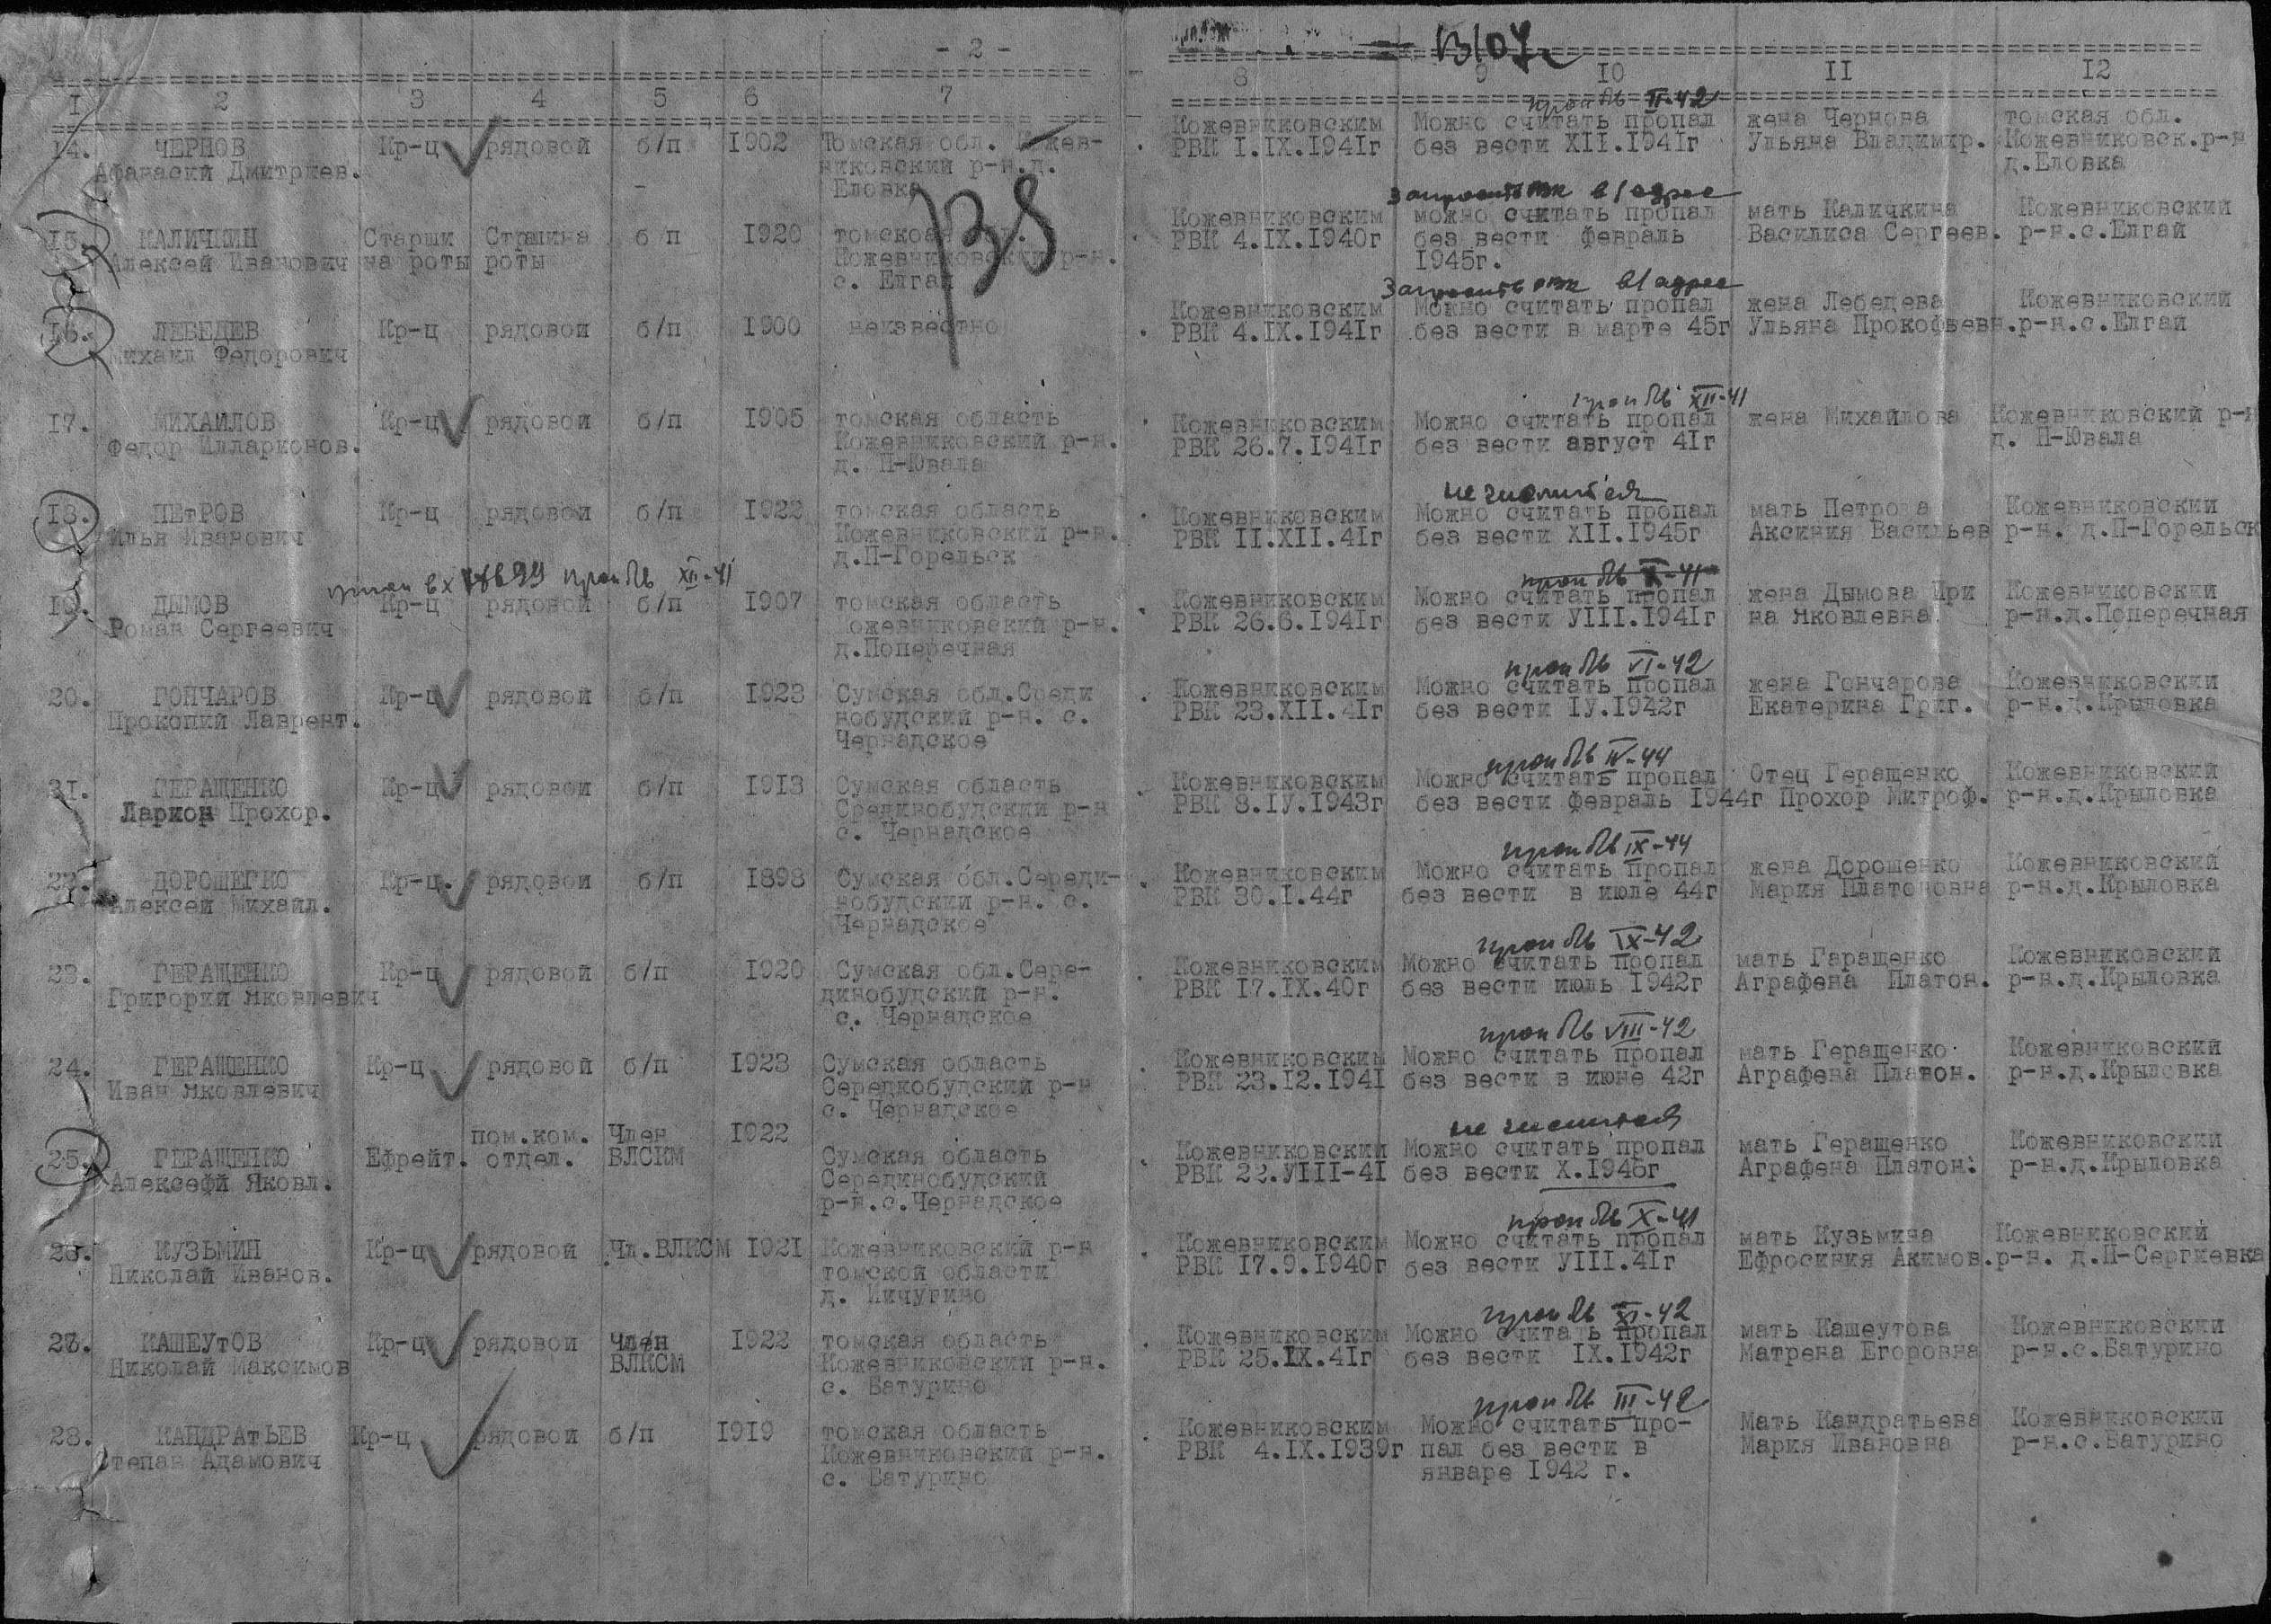 - 2 -
13107
1 2 3 4 5 6 7 8 9 10 11 12
138
проп б/в II-42
14. ЧЕРНОВ Кр-ц рядовой б/п 1902 Томская обл. Кожев- Кожевниковским Можно считать пропал жена Чернова томская обл.
Афанасий Дмитриев. никовский р-н.д. РВК 1.IX.1941г без вести XII.1941г Ульяна Владимир. Кожевниковск.р-н
Еловка д.Еловка
Запросить РВК в/адрес
15. КАЛИЧКИН Старши Страшина б/п 1920 томскоая обл. Кожевниковским можно считать пропал мать Каличкина Кожевниковский
Алексей Иванович на роты роты Кожевниковский р-н. РВК 4.IX.1940г без вести февраль Василиса Сергеев. р-н.с.Елгай
с. Елгай 1945г.
Запросить РВК в/адрес
16. ЛЕБЕДЕВ Кр-ц рядовой б/п 1900 неизвестно Кожевниковским Можно считать пропал жена Лебедева Кожевниковский
Михаил Федорович РВК 4.IX.1941г без вести в марте 45г Ульяна Прокофьевн. р-н.с.Елгай
проп б/в XII-41
17. МИХАЙЛОВ Кр-ц рядовой б/п 1905 томская область Кожевниковским Можно считать пропал жена Михайлова Кожевниковский р-н
Федор Илларионов. Кожевниковский р-н. РВК 26.7.1941г без вести август 41г д. П-Ювала
д. П-Ювала
не числится
18. ПЕтРОВ Кр-ц рядовой б/п 1922 томская область Кожевниковским Можно считать пропал мать Петрова Кожевниковский
Илья Иванович Кожевниковский р-н. РВК 11.XII.41г без вести XII.1945г Аксиния Васильев р-н. д.П-Горельск
д.П-Горельск
вх 78699 проп б/в XII-41 проп б/в X-41
19. ДЫМОВ Кр-ц рядовой б/п 1907 томская область Кожевниковским Можно считать пропал жена Дымова Ири Кожевниковский
Роман Сергеевич Кожевниковский р-н. РВК 26.6.1941г без вести УIII.1941г на Яковлевна р-н.д.Поперечная
д.Поперечная
проп б/в VI-42
20. ГОНЧАРОВ Кр-ц рядовой б/п 1923 Сумская обл.Среди Кожевниковским Можно считать пропал жена Гончарова Кожевниковский
Прокопий Лаврент. нобудский р-н. с. РВК 23.XII.41г без вести IУ.1942г Екатерина Григ. р-н.д.Крыловка
Чернадское
проп б/в IV-44
21. ГЕРАЩЕНКО Кр-ц рядовой б/п 1913 Сумская область Кожевниковским Можно считать пропал Отец Геращенко Кожевниковский
Ларион Прохор. Срединобудский р-н РВК 8.IУ.1943г без вести февраль 1944г Прохор Митроф. р-н.д.Крыловка
с. Чернадское
проп б/в IX-44
22. ДОРОШЕГКО Кр-ц. рядовой б/п 1898 Сумская обл.Середи- Кожевниковским Можно считать пропал жена Дорошенко Кожевниковский
Алексей Михайл. нобудский р-н. с. РВК 30.I.44г без вести в июле 44г Мария Платоновна р-н.д.Крыловка
Чернадское
проп б/в IX-42
23. ГЕРАЩЕНКО Кр-ц рядовой б/п 1920 Сумская обл.Сере- Кожевниковским Можно считать пропал мать Гаращенко Кожевниковский
Григорий Яковлевич динобудский р-н. РВК 17.IX.40г без вести июль 1942г Аграфена Платон. р-н.д.Крыловка
с. Чернадское
проп б/в VIII-42
24. ГЕРАЩЕНКО Кр-ц рядовой б/п 1923 Сумская область Кожевниковским Можно считать пропал мать Геращенко Кожевниковский
Иван Яковлевич Середнобудский р-н РВК 23.12.1941 без вести в июне 42г Аграфена Платон. р-н.д.Крыловка
с. Чернадское
не числится
пом.ком. Член 1922
25. ГЕРАЩЕНКО Ефрейт. отдел. ВЛСКМ Сумская область Кожевниковский Можно считать пропал мать Геращенко Кожевниковский
Алексефй Яковл. Серединобудский РВК 22.УIII-41 без вести X.1945г Аграфена Платон. р-н.д.Крыловка
р-н.с.Чернадское
проп б/в X-41
26. КУЗЬМИН Кр-ц рядовой Чл.ВЛКСМ 1921 Кожевниковский р-н Кожевниковским Можно считать пропал мать Кузьмина Кожевниковский
Николай Иванов. томской области РВК 17.9.1940г без вести УIII.41г Ефросиния Акимов. р-н. д.Н-Сергиевка
д. Кичугино
проп б/в XI-42
27. КАШЕУтОВ Кр-ц рядовой Член 1922 томская область Кожевниковским Можно считать пропал мать Кашеутова Кожевниковский
Николай Максимов ВЛКСМ Кожевниковский р-н. РВК 25.IX.41г без вести IX.1942г Матрена Егоровна р-н.с.Батурино
с. Батурино
проп б/в III-42
28. КАНДРАтЬЕВ Кр-ц рядовой б/п 1919 томская область Кожевниковским Можно считать про- Мать Кандратьева Кожевниковский
Степан Адамович Кожевниковский р-н. РВК 4.IX.1939г пал без вести в Мария Ивановна р-н.с.Батурино
с. Батурино январе 1942 г.